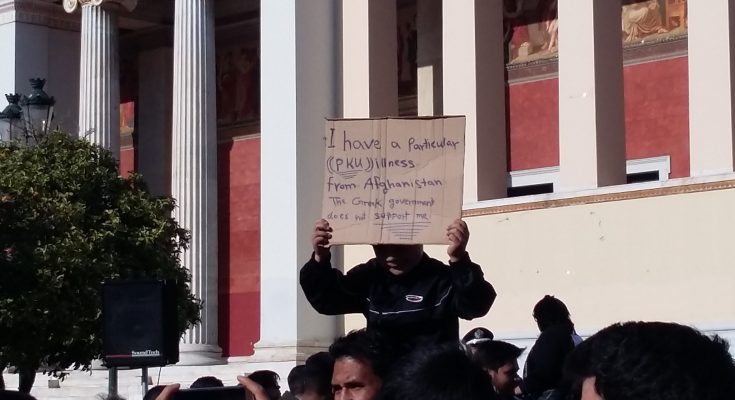 I have a particular
((PKU)) illness
from Afghanistan
The Greek government
does not support me
SoundTech